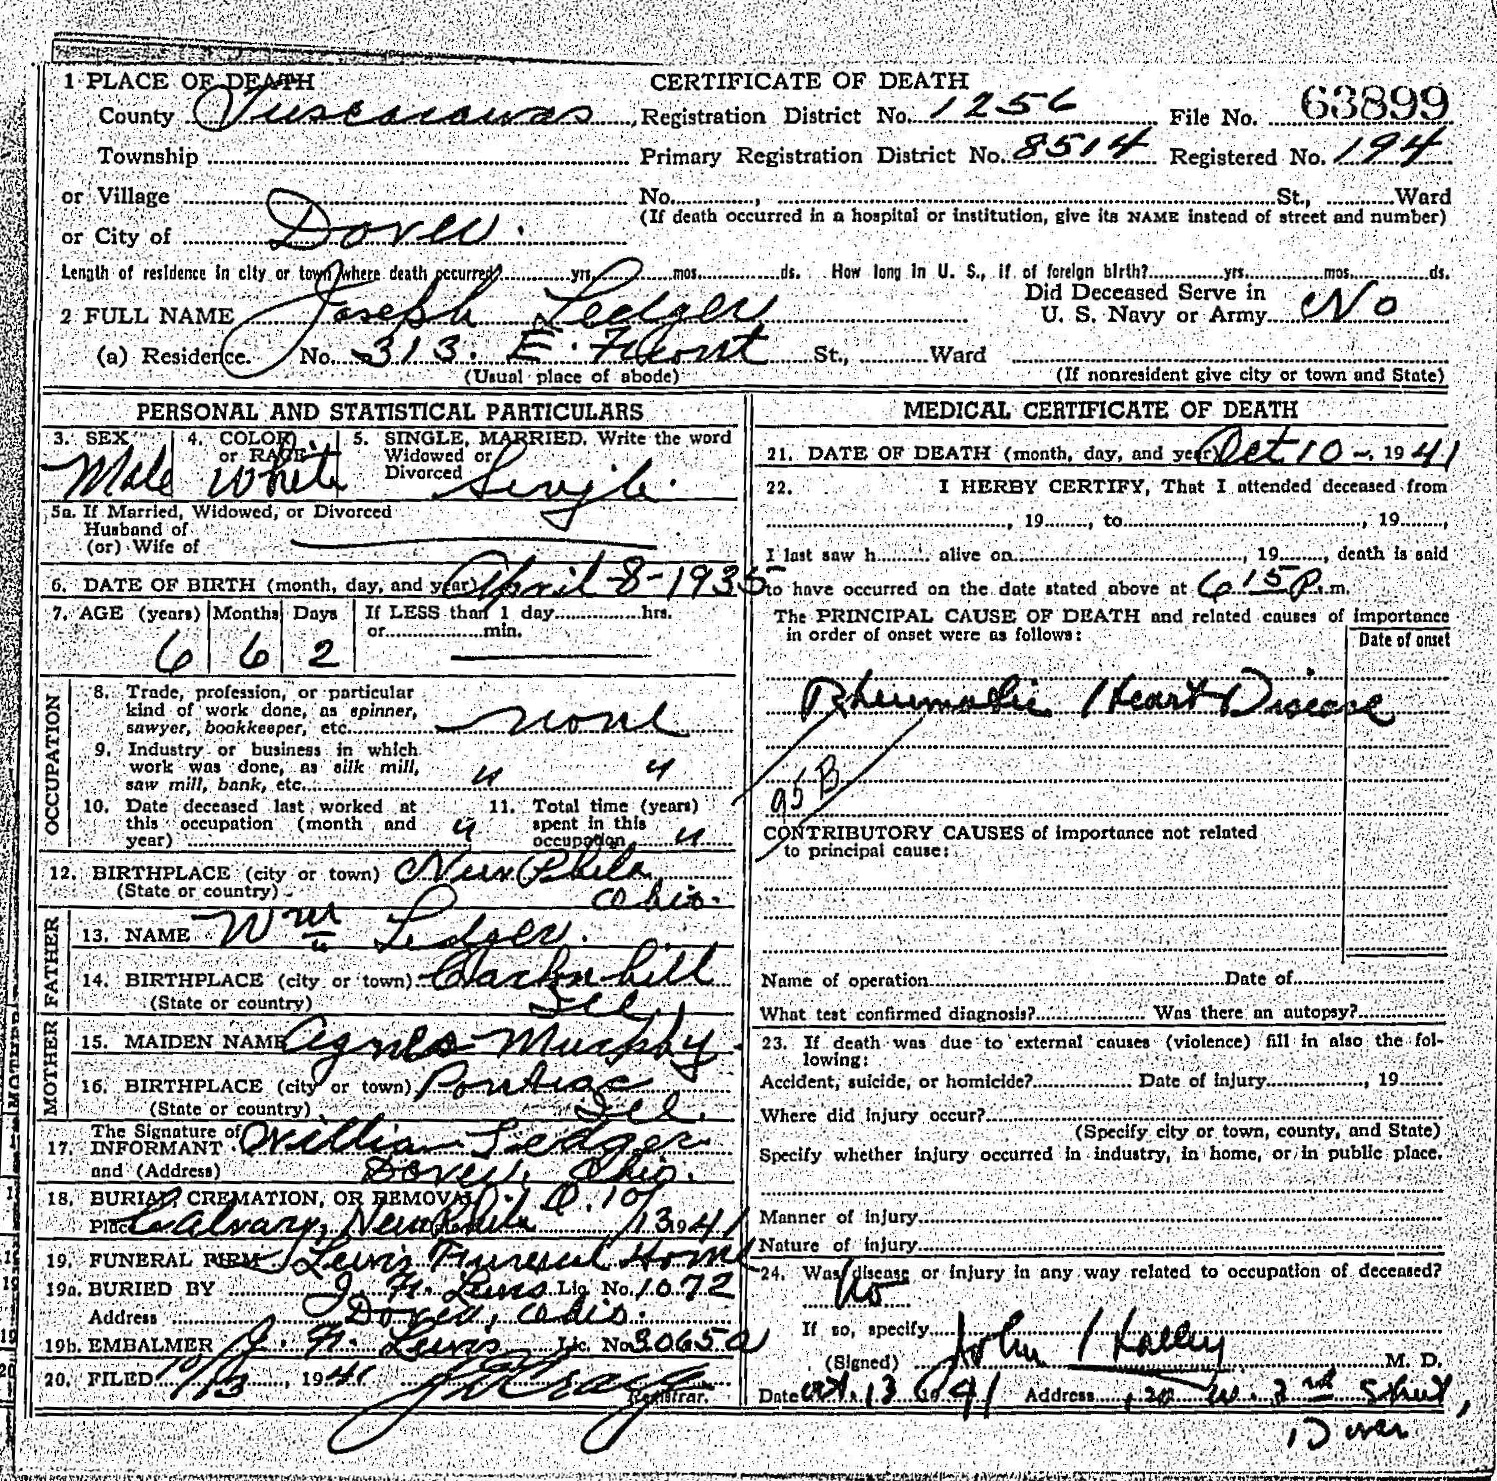 1 PLACE OF DEATH CERTIFICATE OF DEATH
County Tuscarawas, Registration District No. 1256 File No. 63899
Township Primary Registration District No. 8514 Registered No. 194
or Village No. , St., Ward
(If death occurred in a hospital or institution, give its NAME instead of street and number)
or City of Dover.
Length of residence in city or town where death occurred? yrs. mos. ds. How long in U. S., if of foreign birth? yrs. mos. ds.
2 FULL NAME Joseph Ledger Did Deceased Serve in U. S. Navy or Army No
(a) Residence. No. 313. E. Front St., Ward
(Usual place of abode) (If nonresident give city or town and State)
PERSONAL AND STATISTICAL PARTICULARS
3. SEX Male
4. COLOR or RACE White
5. SINGLE, MARRIED, Write the word
Widowed or
Divorced Single.
5a. If Married, Widowed, or Divorced
Husband of
(or) Wife of
6. DATE OF BIRTH (month, day, and year) April-8-1935
7. AGE (years) Months Days If LESS than 1 day hrs.
or min.
6 6 2
OCCUPATION
8. Trade, profession, or particular
kind of work done, as spinner,
sawyer, bookkeeper, etc. none
9. Industry or business in which
work was done, as silk mill,
saw mill, bank, etc. " "
10. Date deceased last worked at
this occupation (month and
year) "
11. Total time (years)
spent in this
occupation "
12. BIRTHPLACE (city or town) New Phila
(State or country) Ohio.
FATHER
13. NAME Wm Ledger.
14. BIRTHPLACE (city or town)
(State or country) Ill.
MOTHER
15. MAIDEN NAME Agnes Murphy
16. BIRTHPLACE (city or town) Pontiac
(State or country) Ill.
17. The Signature of
INFORMANT William Ledger
and (Address) Dover, Ohio.
18. BURIAL, CREMATION, OR REMOVAL
Place Calvary, New Phila 10/13 1941
19. FUNERAL FIRM Lewis Funeral Home
19a. BURIED BY Lewis Lic. No. 1072
Address Dover, Ohio.
19b. EMBALMER Lewis Lic. No. 3065a
20. FILED 10/13, 1941
Registrar.
MEDICAL CERTIFICATE OF DEATH
21. DATE OF DEATH (month, day, and year) Oct 10-, 1941
22. I HERBY CERTIFY, That I attended deceased from
, 19 , to , 19 ,
I last saw h alive on , 19 , death is said
to have occurred on the date stated above at 6 15 P. m.
The PRINCIPAL CAUSE OF DEATH and related causes of importance
in order of onset were as follows:
Date of onset
Rheumatic Heart Disease
95 B
CONTRIBUTORY CAUSES of importance not related
to principal cause:
Name of operation Date of
What test confirmed diagnosis? Was there an autopsy?
23. If death was due to external causes (violence) fill in also the fol-
lowing:
Accident, suicide, or homicide? Date of injury , 19
Where did injury occur?
(Specify city or town, county, and State)
Specify whether injury occurred in industry, in home, or in public place.
Manner of injury
Nature of injury
24. Was disease or injury in any way related to occupation of deceased?
No
If so, specify
(Signed) John M. D.
Date Oct. 13 1941 Address 120 W. 3rd Street,
Dover